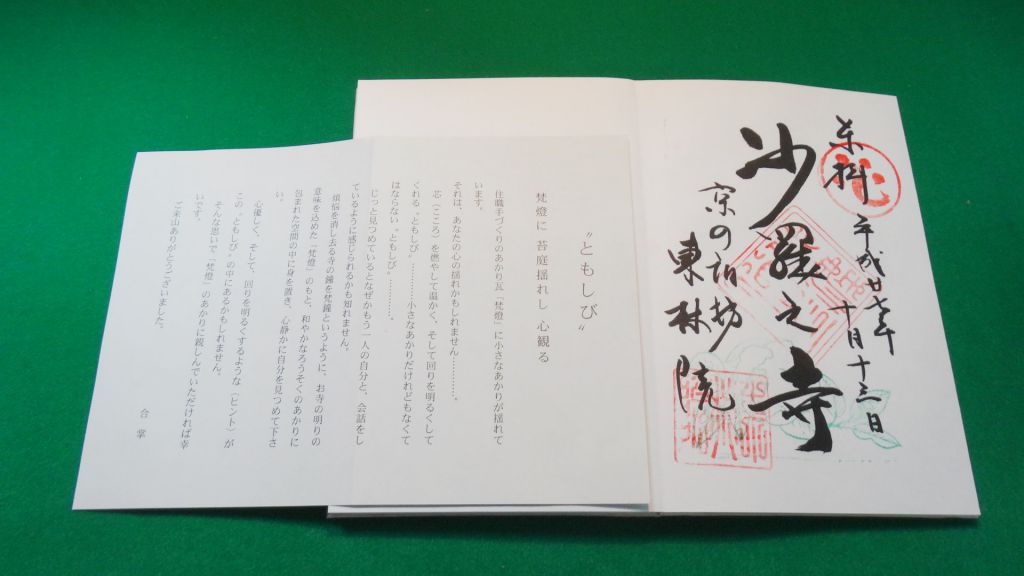 来拝 平成廿七年 十月十三日
沙羅之寺
京の宿坊
東林院
〝ともしび〟
梵燈に 苔庭揺れし 心観る
住職手づくりのあかり瓦「梵燈」に小さなあかりが揺れて
います。
それは、あなたの心の揺れかもしれません…………。
芯(こころ)を燃やして温かく、そして回りを明るくして
くれる〝ともしび〟…………小さなあかりだけれどもなくて
はならない〝ともしび〟…………。
じっと見つめているとなぜかもう一人の自分と、会話をし
ているように感じられるかも知れません。
煩悩を消し去る寺の鐘を梵鐘というように、お寺の明りの
意味を込めた「梵燈」のもと、和やかなろうそくのあかりに
包まれた空間の中に身を置き、心静かに自分を見つめて下さ
い。
心優しく、そして、回りを明るくするような(ヒント)が
この〝ともしび〟の中にあるかもしれません。
そんな思いで「梵燈」のあかりに親しんでいただければ幸
いです。
ご来山ありがとうございました。
合掌